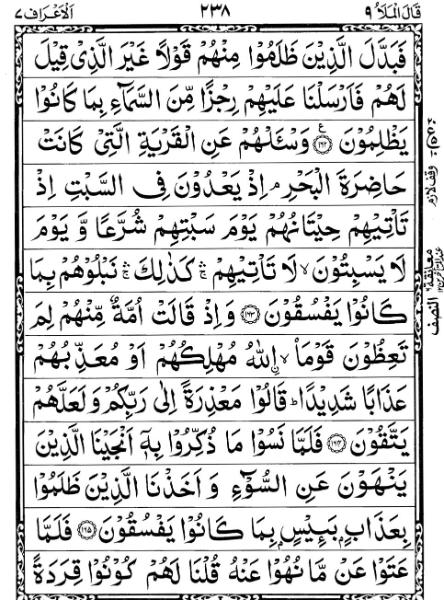 قَالَ الْمَلَأُ ٩ ٢٣٨ اَلْاَعْرَاف ٧
فَبَدَّلَ الَّذِيْنَ ظَلَمُوْا مِنْهُمْ قَوْلًا غَيْرَ الَّذِىْ قِيْلَ
لَهُمْ فَاَرْسَلْنَا عَلَيْهِمْ رِجْزًا مِّنَ السَّمَآءِ بِمَا كَانُوْا
يَظْلِمُوْنَ ﴿١٦٢﴾ ع وَسْـَٔلْهُمْ عَنِ الْقَرْيَةِ الَّتِىْ كَانَتْ
حَاضِرَةَ الْبَحْرِ ۘ اِذْ يَعْدُوْنَ فِى السَّبْتِ اِذْ
تَاْتِيْهِمْ حِيْتَانُهُمْ يَوْمَ سَبْتِهِمْ شُرَّعًا وَّ يَوْمَ
لَا يَسْبِتُوْنَ ۙ لَا تَاْتِيْهِمْ ۛ كَذٰلِكَ ۛ نَبْلُوْهُمْ بِمَا
كَانُوْا يَفْسُقُوْنَ ﴿١٦٣﴾ وَاِذْ قَالَتْ اُمَّةٌ مِّنْهُمْ لِمَ
تَعِظُوْنَ قَوْمَا ۙ اللّٰهُ مُهْلِكُهُمْ اَوْ مُعَذِّبُهُمْ
عَذَابًا شَدِيْدًا ؕ قَالُوْا مَعْذِرَةً اِلٰى رَبِّكُمْ وَلَعَلَّهُمْ
يَتَّقُوْنَ ﴿١٦٤﴾ فَلَمَّا نَسُوْا مَا ذُكِّرُوْا بِهٖۤ اَنْجَيْنَا الَّذِيْنَ
يَنْهَوْنَ عَنِ السُّوْٓءِ وَ اَخَذْنَا الَّذِيْنَ ظَلَمُوْا
بِعَذَابٍۭ بَـِٔيْسٍۭ بِمَا كَانُوْا يَفْسُقُوْنَ ﴿١٦٥﴾ فَلَمَّا
عَتَوْا عَنْ مَّا نُهُوْا عَنْهُ قُلْنَا لَهُمْ كُوْنُوْا قِرَدَةً
وقف لازم
معانقة
النصف